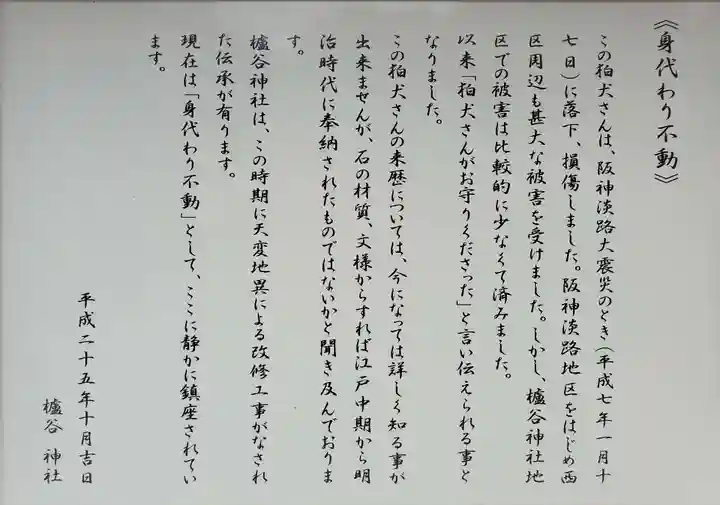 《身代わり不動》
この狛犬さんは、阪神淡路大震災のとき(平成七年一月十
七日)に落下、損傷しました。阪神淡路地区をはじめ西
区周辺も甚大な被害を受けました。しかし、櫨谷神社地
区での被害は比較的に少なくて済みました。
以来「狛犬さんがお守りくださった」と言い伝えられる事と
なりました。
この狛犬さんの来歴については、今になっては詳しく知る事が
出来ませんが、石の材質、文様からすれば江戸中期から明
治時代に奉納されたものではないかと聞き及んでおりま
す。
櫨谷神社は、この時期に天変地異による改修工事がなされ
た伝承が有ります。
現在は「身代わり不動」として、ここに静かに鎮座されてい
ます。
平成二十五年十月吉日
櫨谷 神社